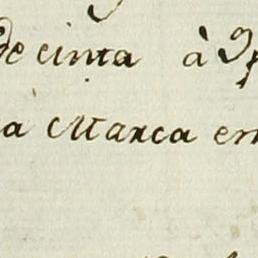 de cinta à
a Marca en